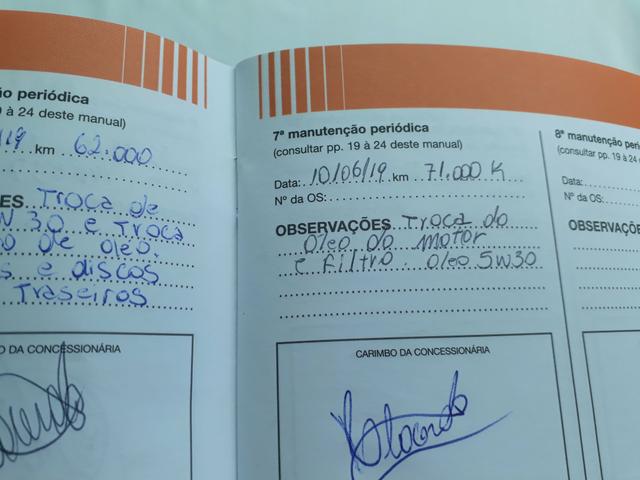 ão periódica
9 à 24 deste manual)
/19 km 62.000
ES Troca de
W 30 e Troca
o de óleo.
s e discos
Traseiros
O DA CONCESSIONÁRIA
7ª manutenção periódica
(consultar pp. 19 à 24 deste manual)
Data: 10/06/19 km 71.000 K
Nº da OS:
OBSERVAÇÕES Troca do
Óleo do motor
e Filtro. Óleo 5W30
CARIMBO DA CONCESSIONÁRIA
8ª manutenção peri
(consultar pp. 19 à 24 d
Data:
Nº da OS:
OBSERVAÇÕE